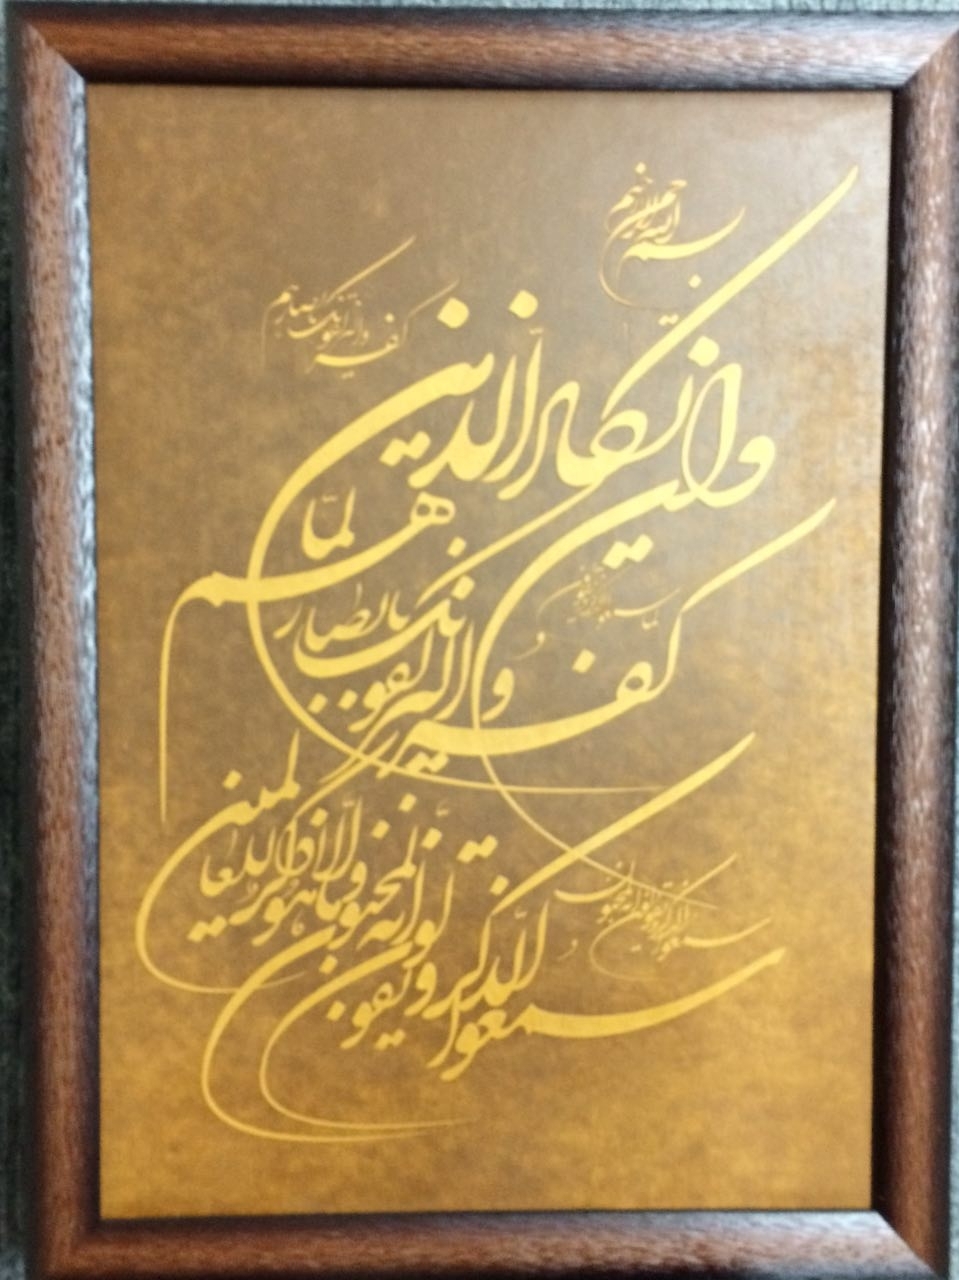 بسم الله الرحمن الرحیم
وان یکاد الذین
کفروا لیزلقونک بابصارهم لما
سمعوا الذکر ویقولون انه لمجنون وما هو الا ذکر للعالمین